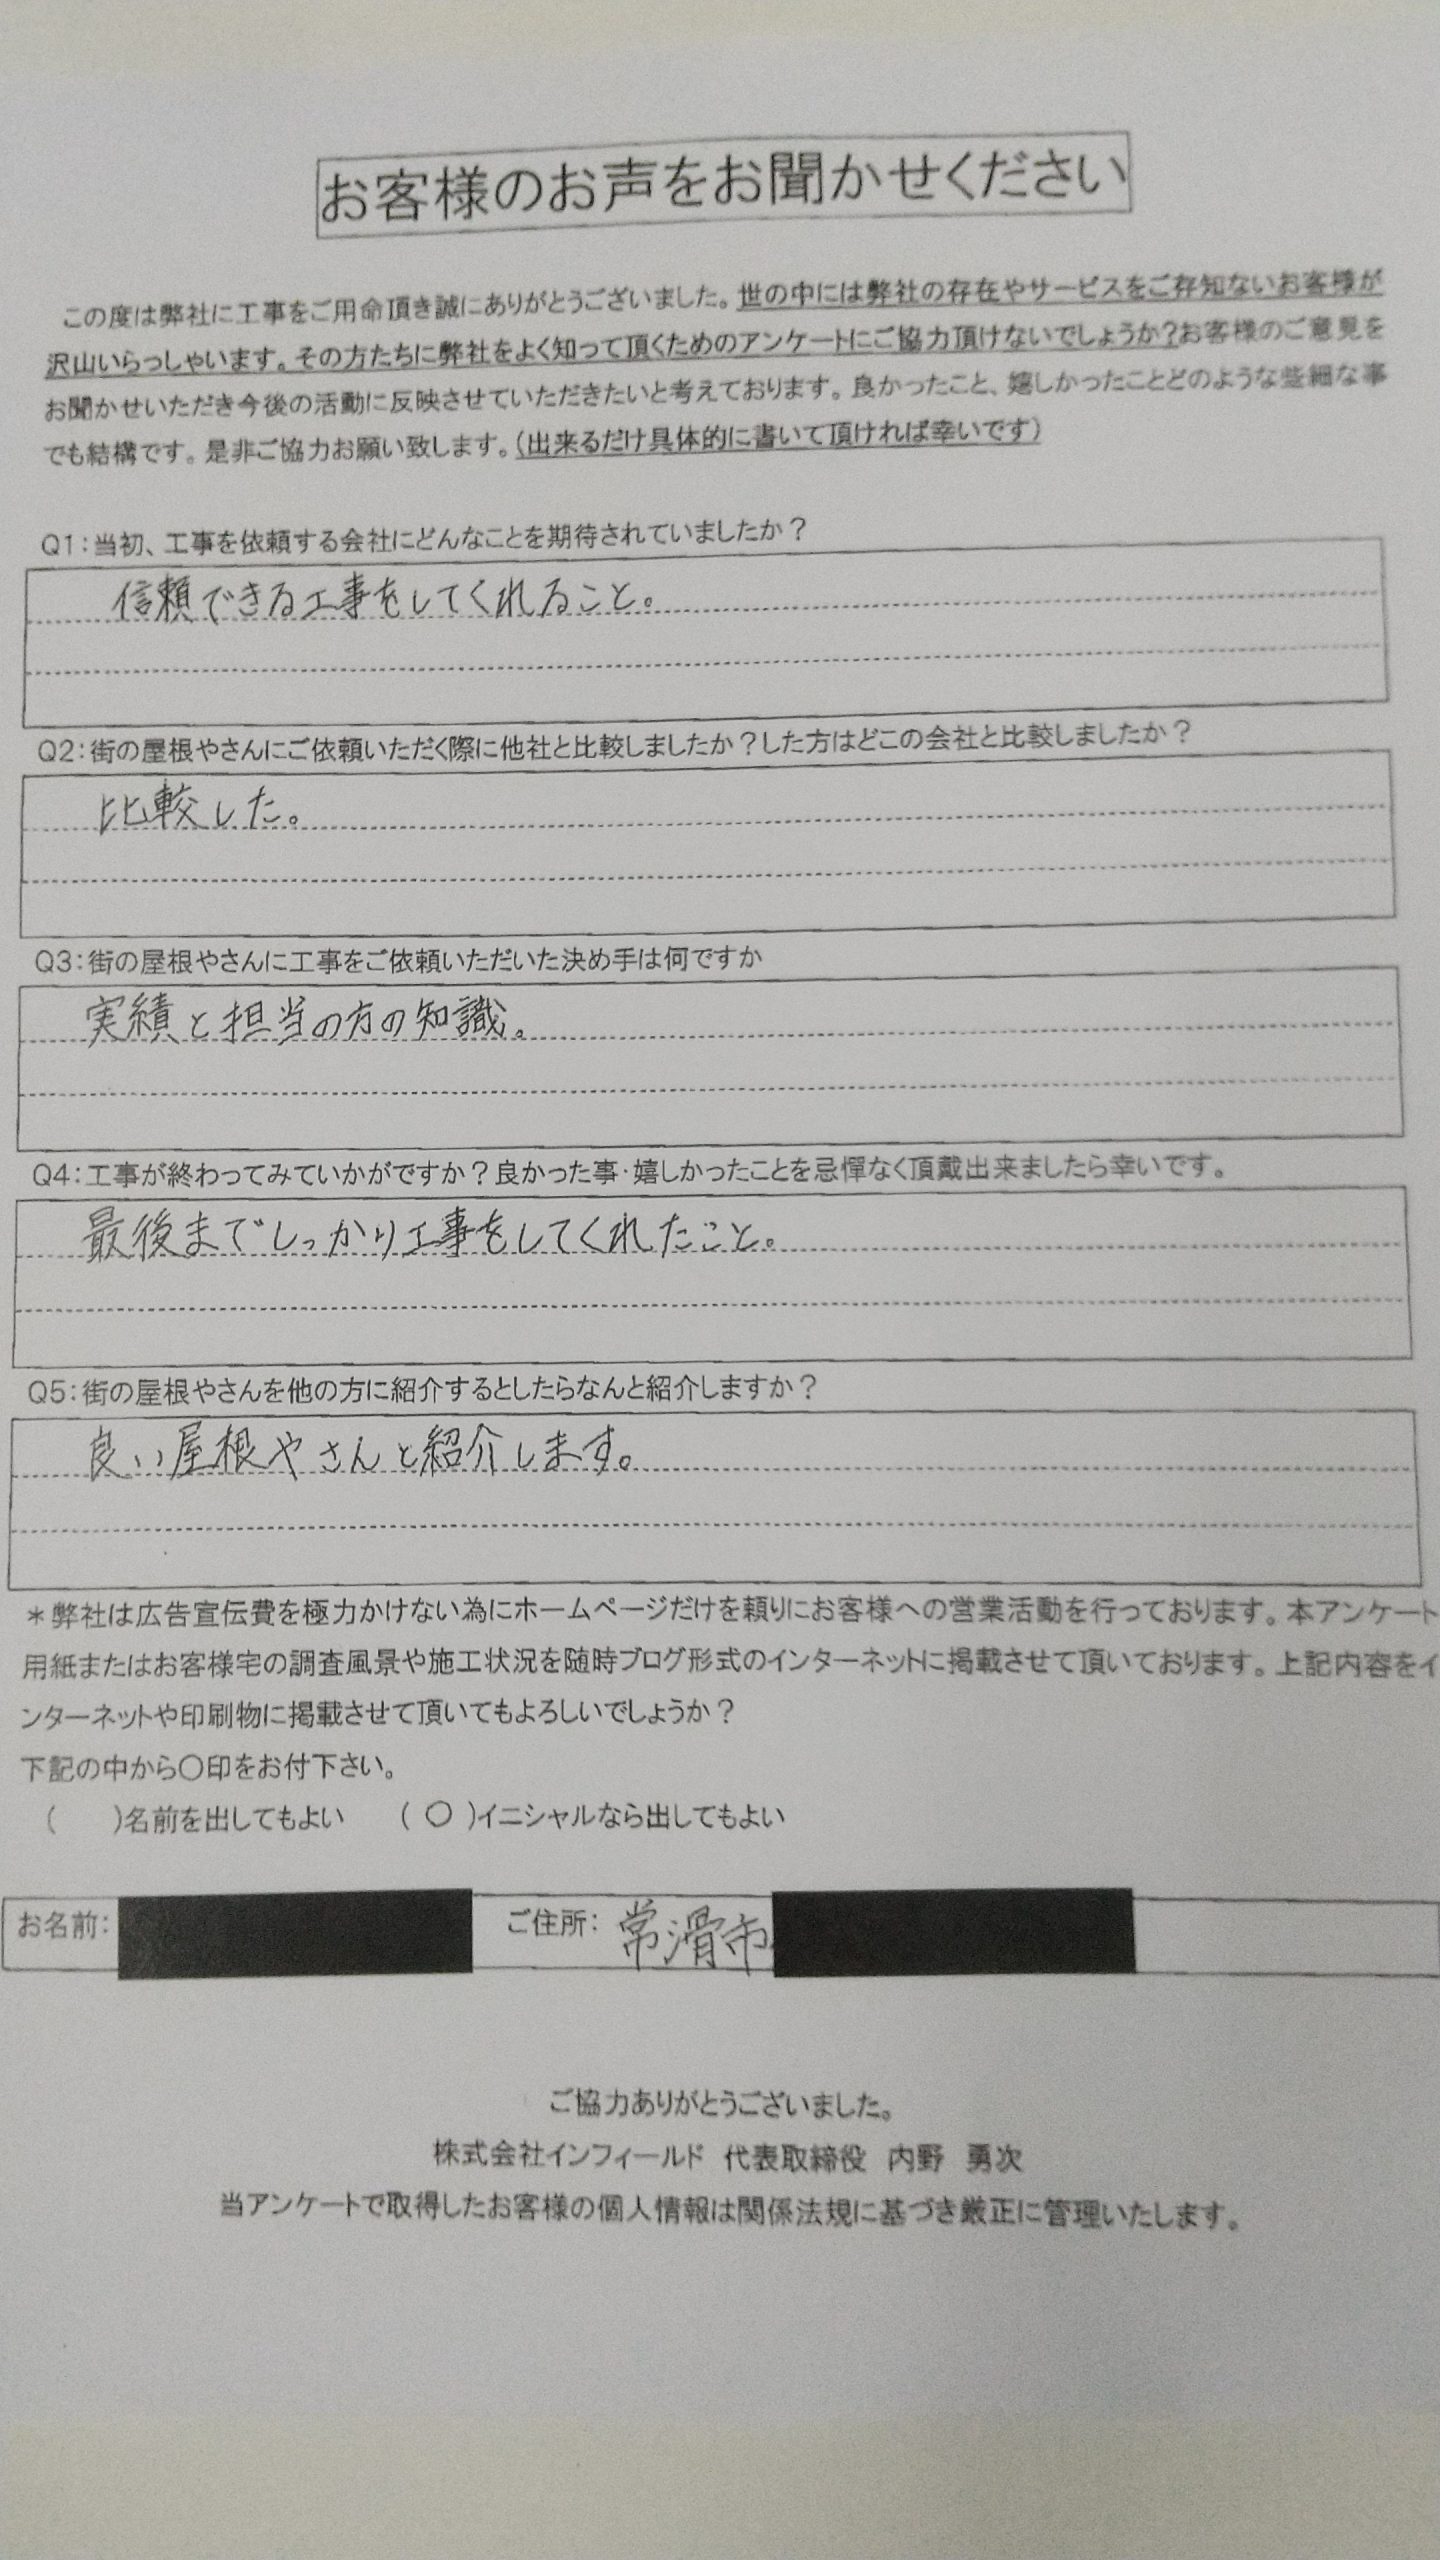 お客様のお声をお聞かせください
この度は弊社に工事をご用命頂き誠にありがとうございました。世の中には弊社の存在やサービスをご存知ないお客様が
沢山いらっしゃいます。その方たちに弊社をよく知って頂くためのアンケートにご協力頂けないでしょうか?お客様のご意見を
お聞かせいただき今後の活動に反映させていただきたいと考えております。良かったこと、嬉しかったことどのような些細な事
でも結構です。是非ご協力お願い致します。(出来るだけ具体的に書いて頂ければ幸いです)
Q1:当初、工事を依頼する会社にどんなことを期待されていましたか?
信頼できる工事をしてくれること。
Q2:街の屋根やさんにご依頼いただく際に他社と比較しましたか?した方はどこの会社と比較しましたか?
比較した。
Q3:街の屋根やさんに工事をご依頼いただいた決め手は何ですか
実績と担当の方の知識。
Q4:工事が終わってみていかがですか?良かった事・嬉しかったことを忌憚なく頂戴出来ましたら幸いです。
最後までしっかり工事をしてくれたこと。
Q5:街の屋根やさんを他の方に紹介するとしたらなんと紹介しますか?
良い屋根やさんと紹介します。
*弊社は広告宣伝費を極力かけない為にホームページだけを頼りにお客様への営業活動を行っております。本アンケート
用紙またはお客様宅の調査風景や施工状況を随時ブログ形式のインターネットに掲載させて頂いております。上記内容をイ
ンターネットや印刷物に掲載させて頂いてもよろしいでしょうか?
下記の中から〇印をお付下さい。
(　　)名前を出してもよい　(〇)イニシャルなら出してもよい
お名前:　ご住所:常滑市
ご協力ありがとうございました。
株式会社インフィールド　代表取締役　内野　勇次
当アンケートで取得したお客様の個人情報は関係法規に基づき厳正に管理いたします。